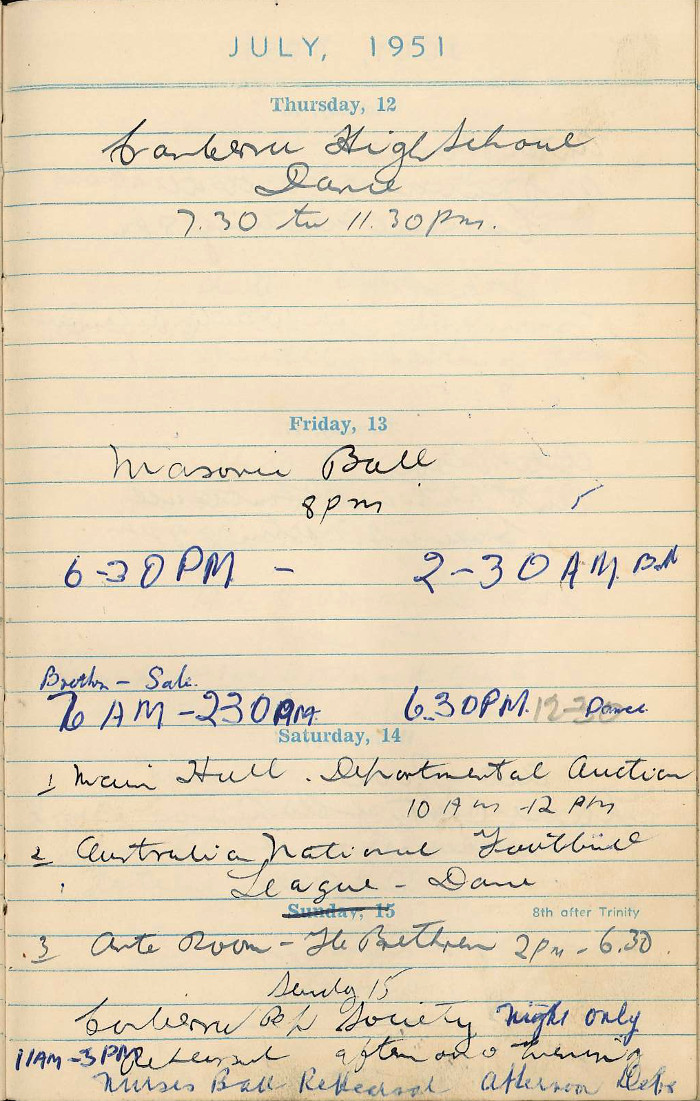 JULY, 1951
Thursday, 12
Canberra High School
Dance
7.30 to 11.30pm.
Friday, 13
Masonic Ball
8pm
6-30PM - 2-30AM. Ball
Brethren - Sale.
7 AM - 230PM. 6.30PM. 12-30 Dance.
Saturday, 14
1 Main Hall. Departmental Auction
10 Am - 12 Pm
2 Australian National Football
League - Dance
Sunday, 15 8th after Trinity
3 Ante Room - The Brethren 2pm - 6.30.
Sunday 15
Canberra Rep Society Night only
11AM - 3PM Rehearsal afternoon & Evening
Nurses Ball Rehearsal Afternoon Debs